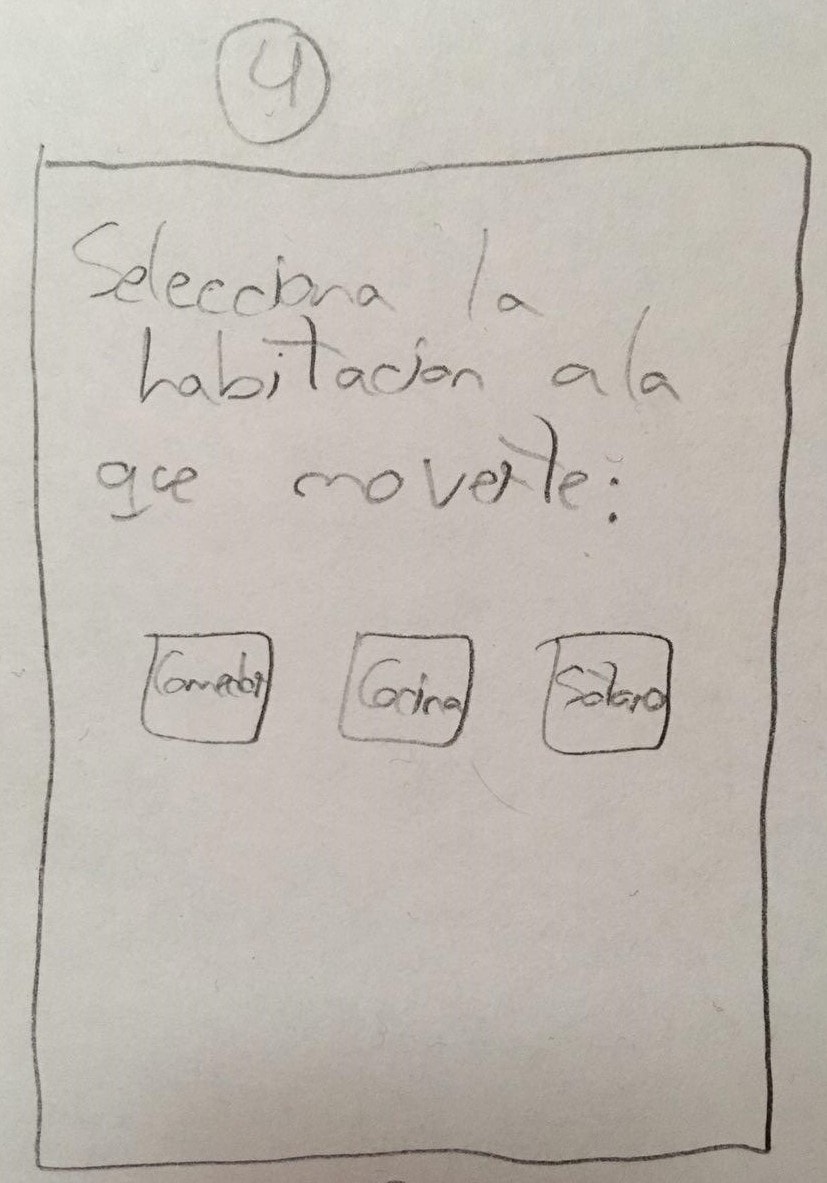 4
Selecciona la
habitacion a la
que moverte:
Comedor Cocina Sotano